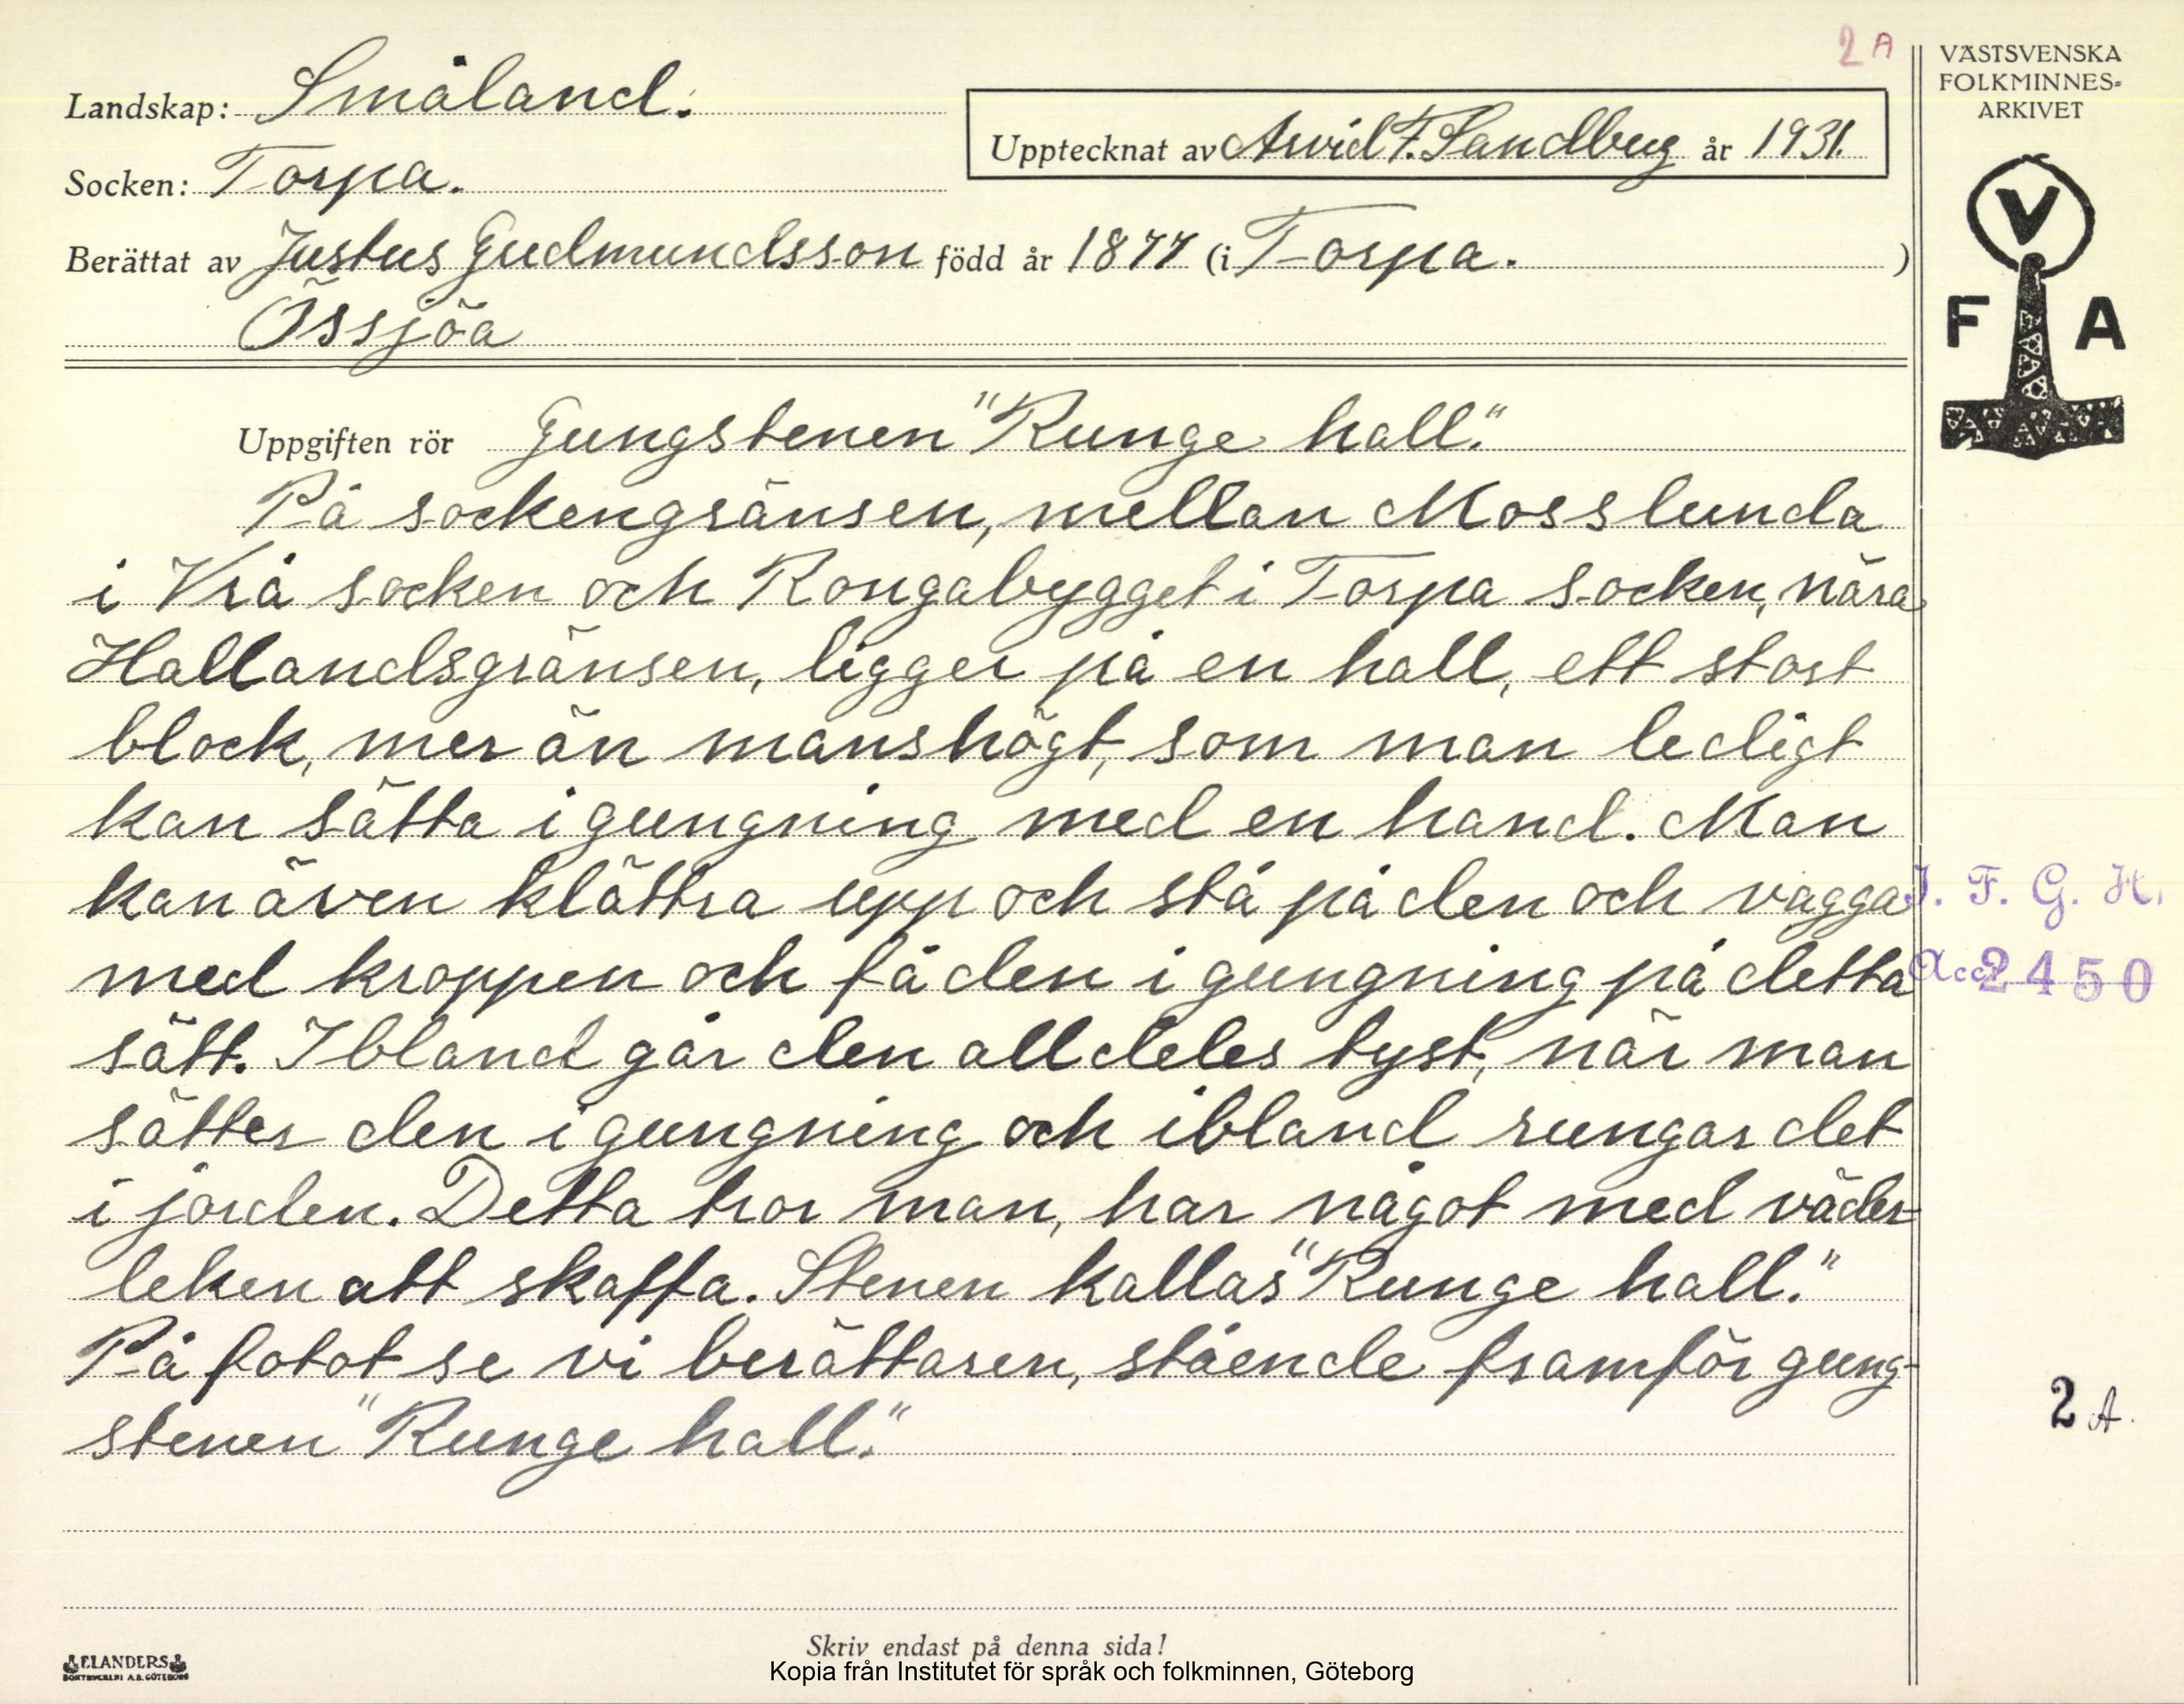 2 A
VÄSTSVENSKA
FOLKMINNES-
ARKIVET
Landskap: Småland.
Upptecknat av Arvid F. Sandberg år 1931.
Socken: Torpa.
Berättat av Justus Gudmundsson född år 1877 (i Torpa. )
Össjöa
V
F A
Uppgiften rör Gungstenen "Runge hall."
På sockengränsen, mellan Mosslunda
i Vrå socken och Rongabygget i Torpa socken, nära
Hallandsgränsen, ligger på en hall, ett stort
block, mer än manshögt, som man ledigt
kan sätta i gungning med en hand. Man
kan även klättra upp och stå på den och vagga
med kroppen och få den i gungning på detta
sätt. Ibland går den alldeles tyst, när man
sätter den i gungning och ibland rungar det
i jorden. Detta tror man, har något med väder=
leken att skaffa. Stenen kallas "Runge hall."
På fotot se vi berättaren, stående framför gung-
stenen "Runge hall."
I. F. G. H.
Acc. 2450
2 A.
Skriv endast på denna sida!
ELANDERS
BOKTRYCKERI A.B. GÖTEBORG
Kopia från Institutet för språk och folkminnen, Göteborg